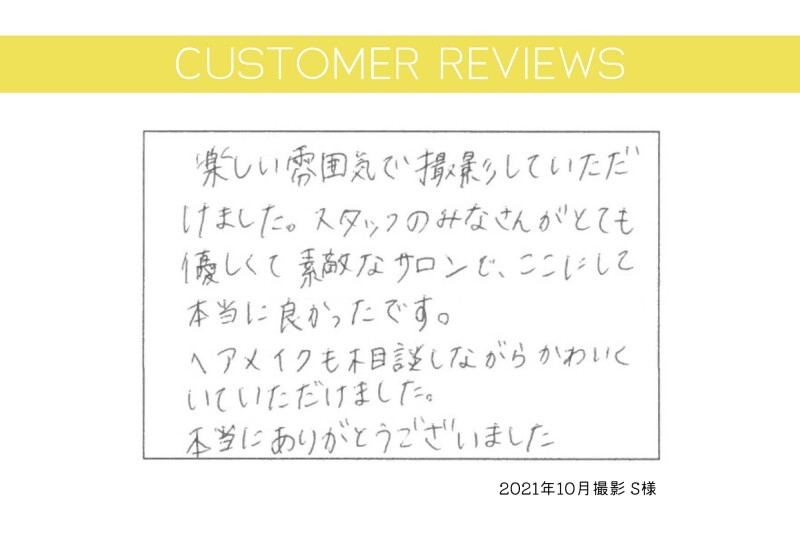 CUSTOMER REVIEWS
楽しい雰囲気で撮影していただ
けました。スタッフのみなさんがとても
優しくて素敵なサロンで、ここにして
本当に良かったです。
ヘアメイクも相談しながらかわいく
いていただけました。
本当にありがとうございました
2021年10月撮影 S様